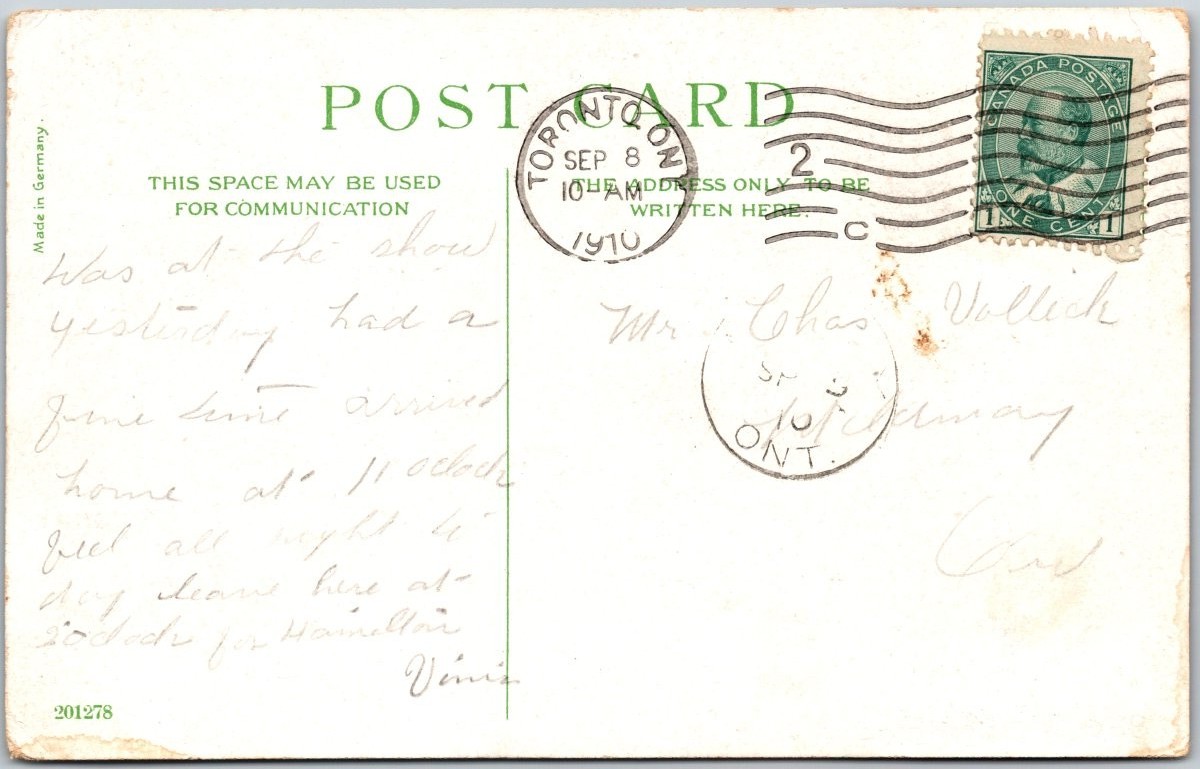 POST CARD
Made in Germany.
THIS SPACE MAY BE USED
FOR COMMUNICATION
THE ADDRESS ONLY TO BE
WRITTEN HERE.
TORONTO, ONT
SEP 8
10 AM
1910
2
C
CANADA POSTAGE
1 ONE CENT 1
Was at the show
yesterday had a
fine time arrived
home at 11 oclock
feel all right to
day leave here at
2oclock for Hamilton
Mr Chas Vollick
Ont
10
ONT.
201278